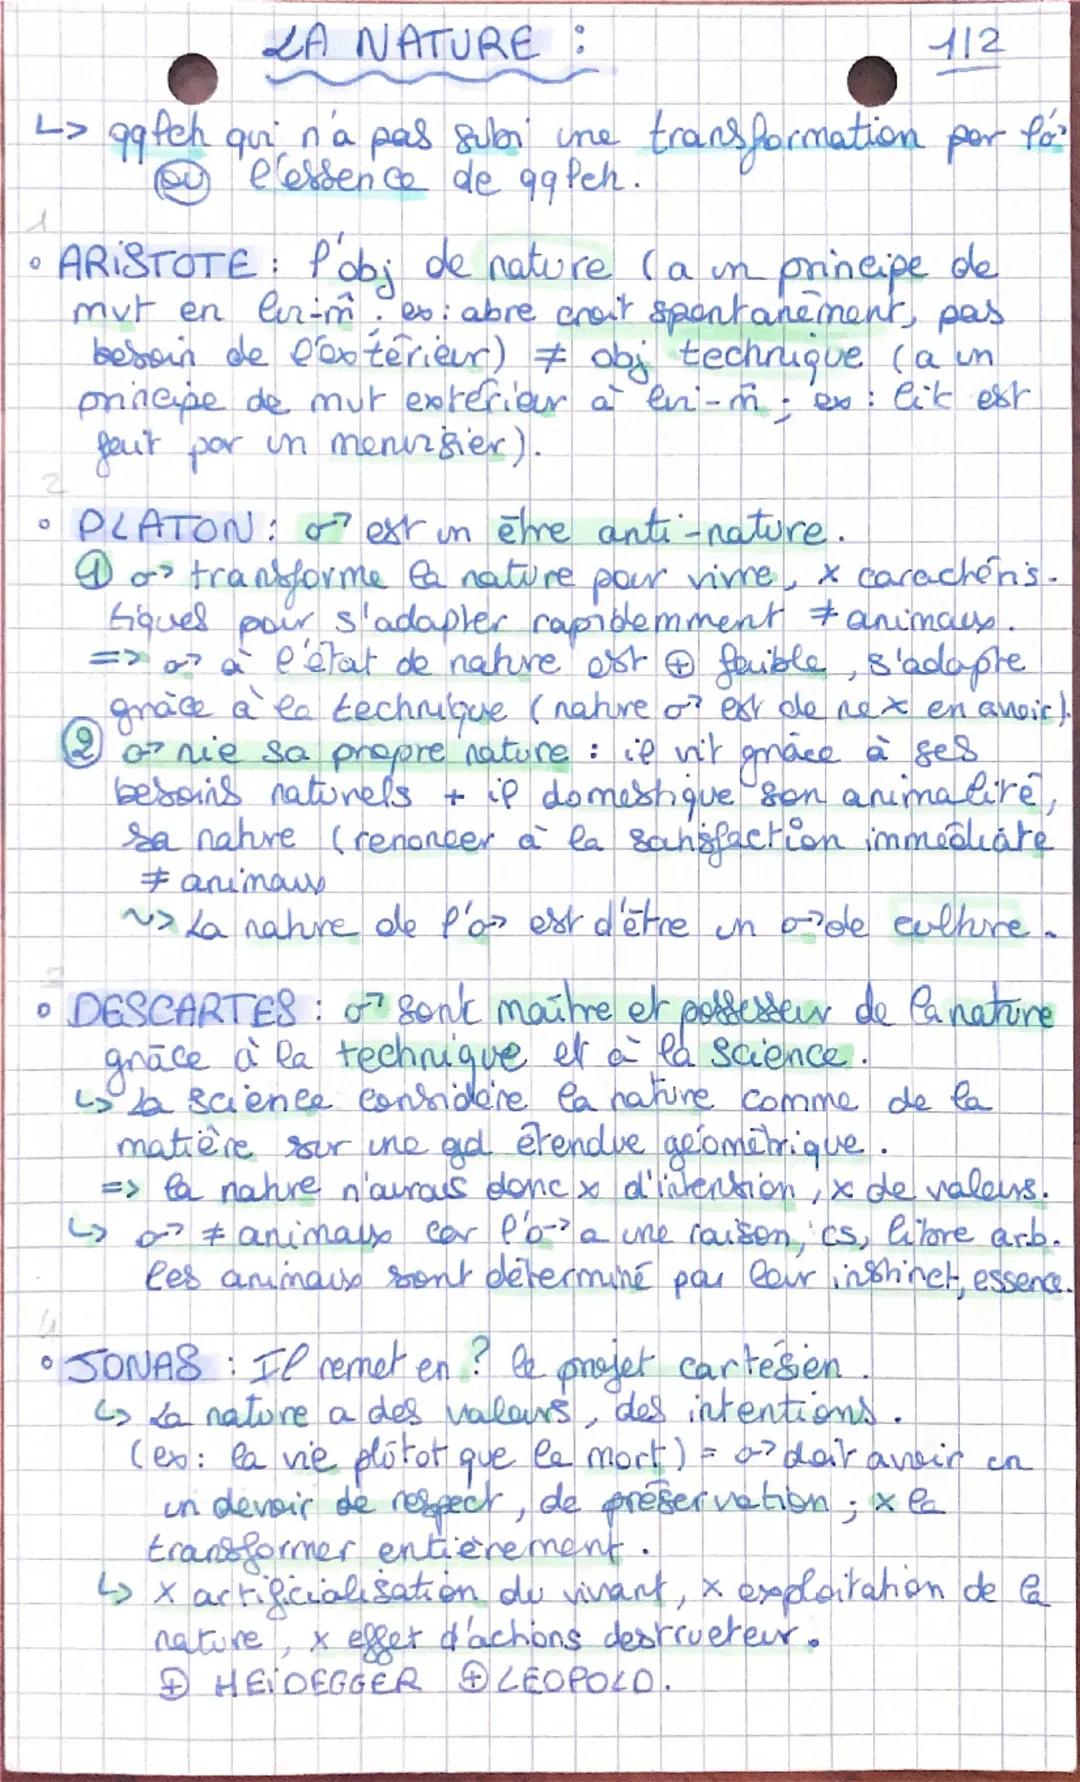 LA NATURE :
1/2
↳ qqch qui n'a pas subi une transformation par l'♂
ou l'essence de qqch.
1
• ARISTOTE : l'obj de nature (a un principe de
mvt en lui-m̂ . ex : abre croit spontanément, pas
besoin de l'extérieur) ≠ obj technique (a un
principe de mvt extérieur à lui-m̂ ; ex : lit est
fait par un menuisier).
2
• PLATON : ♂ est un être anti-nature.
① ♂ transforme la nature pour vivre, x caractéris-
tiques pour s'adapter rapidemment ≠ animaux.
=> ♂ à l'état de nature est ⊕ faible, s'adapte
grâce à la technique (nature ♂ est de ne x en avoir).
② ♂ nie sa propre nature : il vit grâce à ses
besoins naturels + il domestique son animalité,
sa nature (renoncer à la satisfaction immédiate
≠ animaux
~> La nature de l'♂ est d'être un ♂ de culture.
3
• DESCARTES : ♂ sont maître et possesseur de la nature
grâce à la technique et à la science.
↳ La science considère la nature comme de la
matière sur une gd étendue géométrique.
=> la nature n'aurais donc x d'intension, x de valeurs.
↳ ♂ ≠ animaux car l'♂ a une raison, cs, libre arb.
les animaux sont déterminé par leur instinct, essence.
4
• JONAS : Il remet en ? le projet cartésien.
↳ La nature a des valeurs, des intentions.
(ex : la vie plutôt que la mort) = ♂ doit avoir en
un devoir de respect, de préservation ; x la
transformer entièrement.
↳ x artificialisation du vivant, x exploitation de la
nature, x effet d'actions destructeur.
⊕ HEIDEGGER ⊕ LEOPOLD.